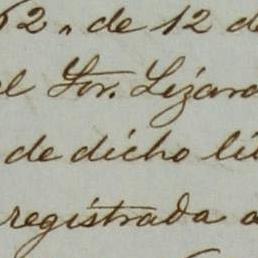 62„ de 12 de
el Sor. Lizard
de dicho li
registrada a